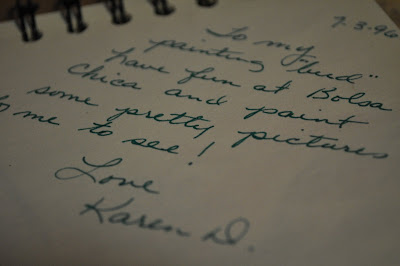 7-3-96
To my
painting "bud"
have fun at Bolsa
Chica and paint
some pretty pictures
me to see!
Love
Karen D.